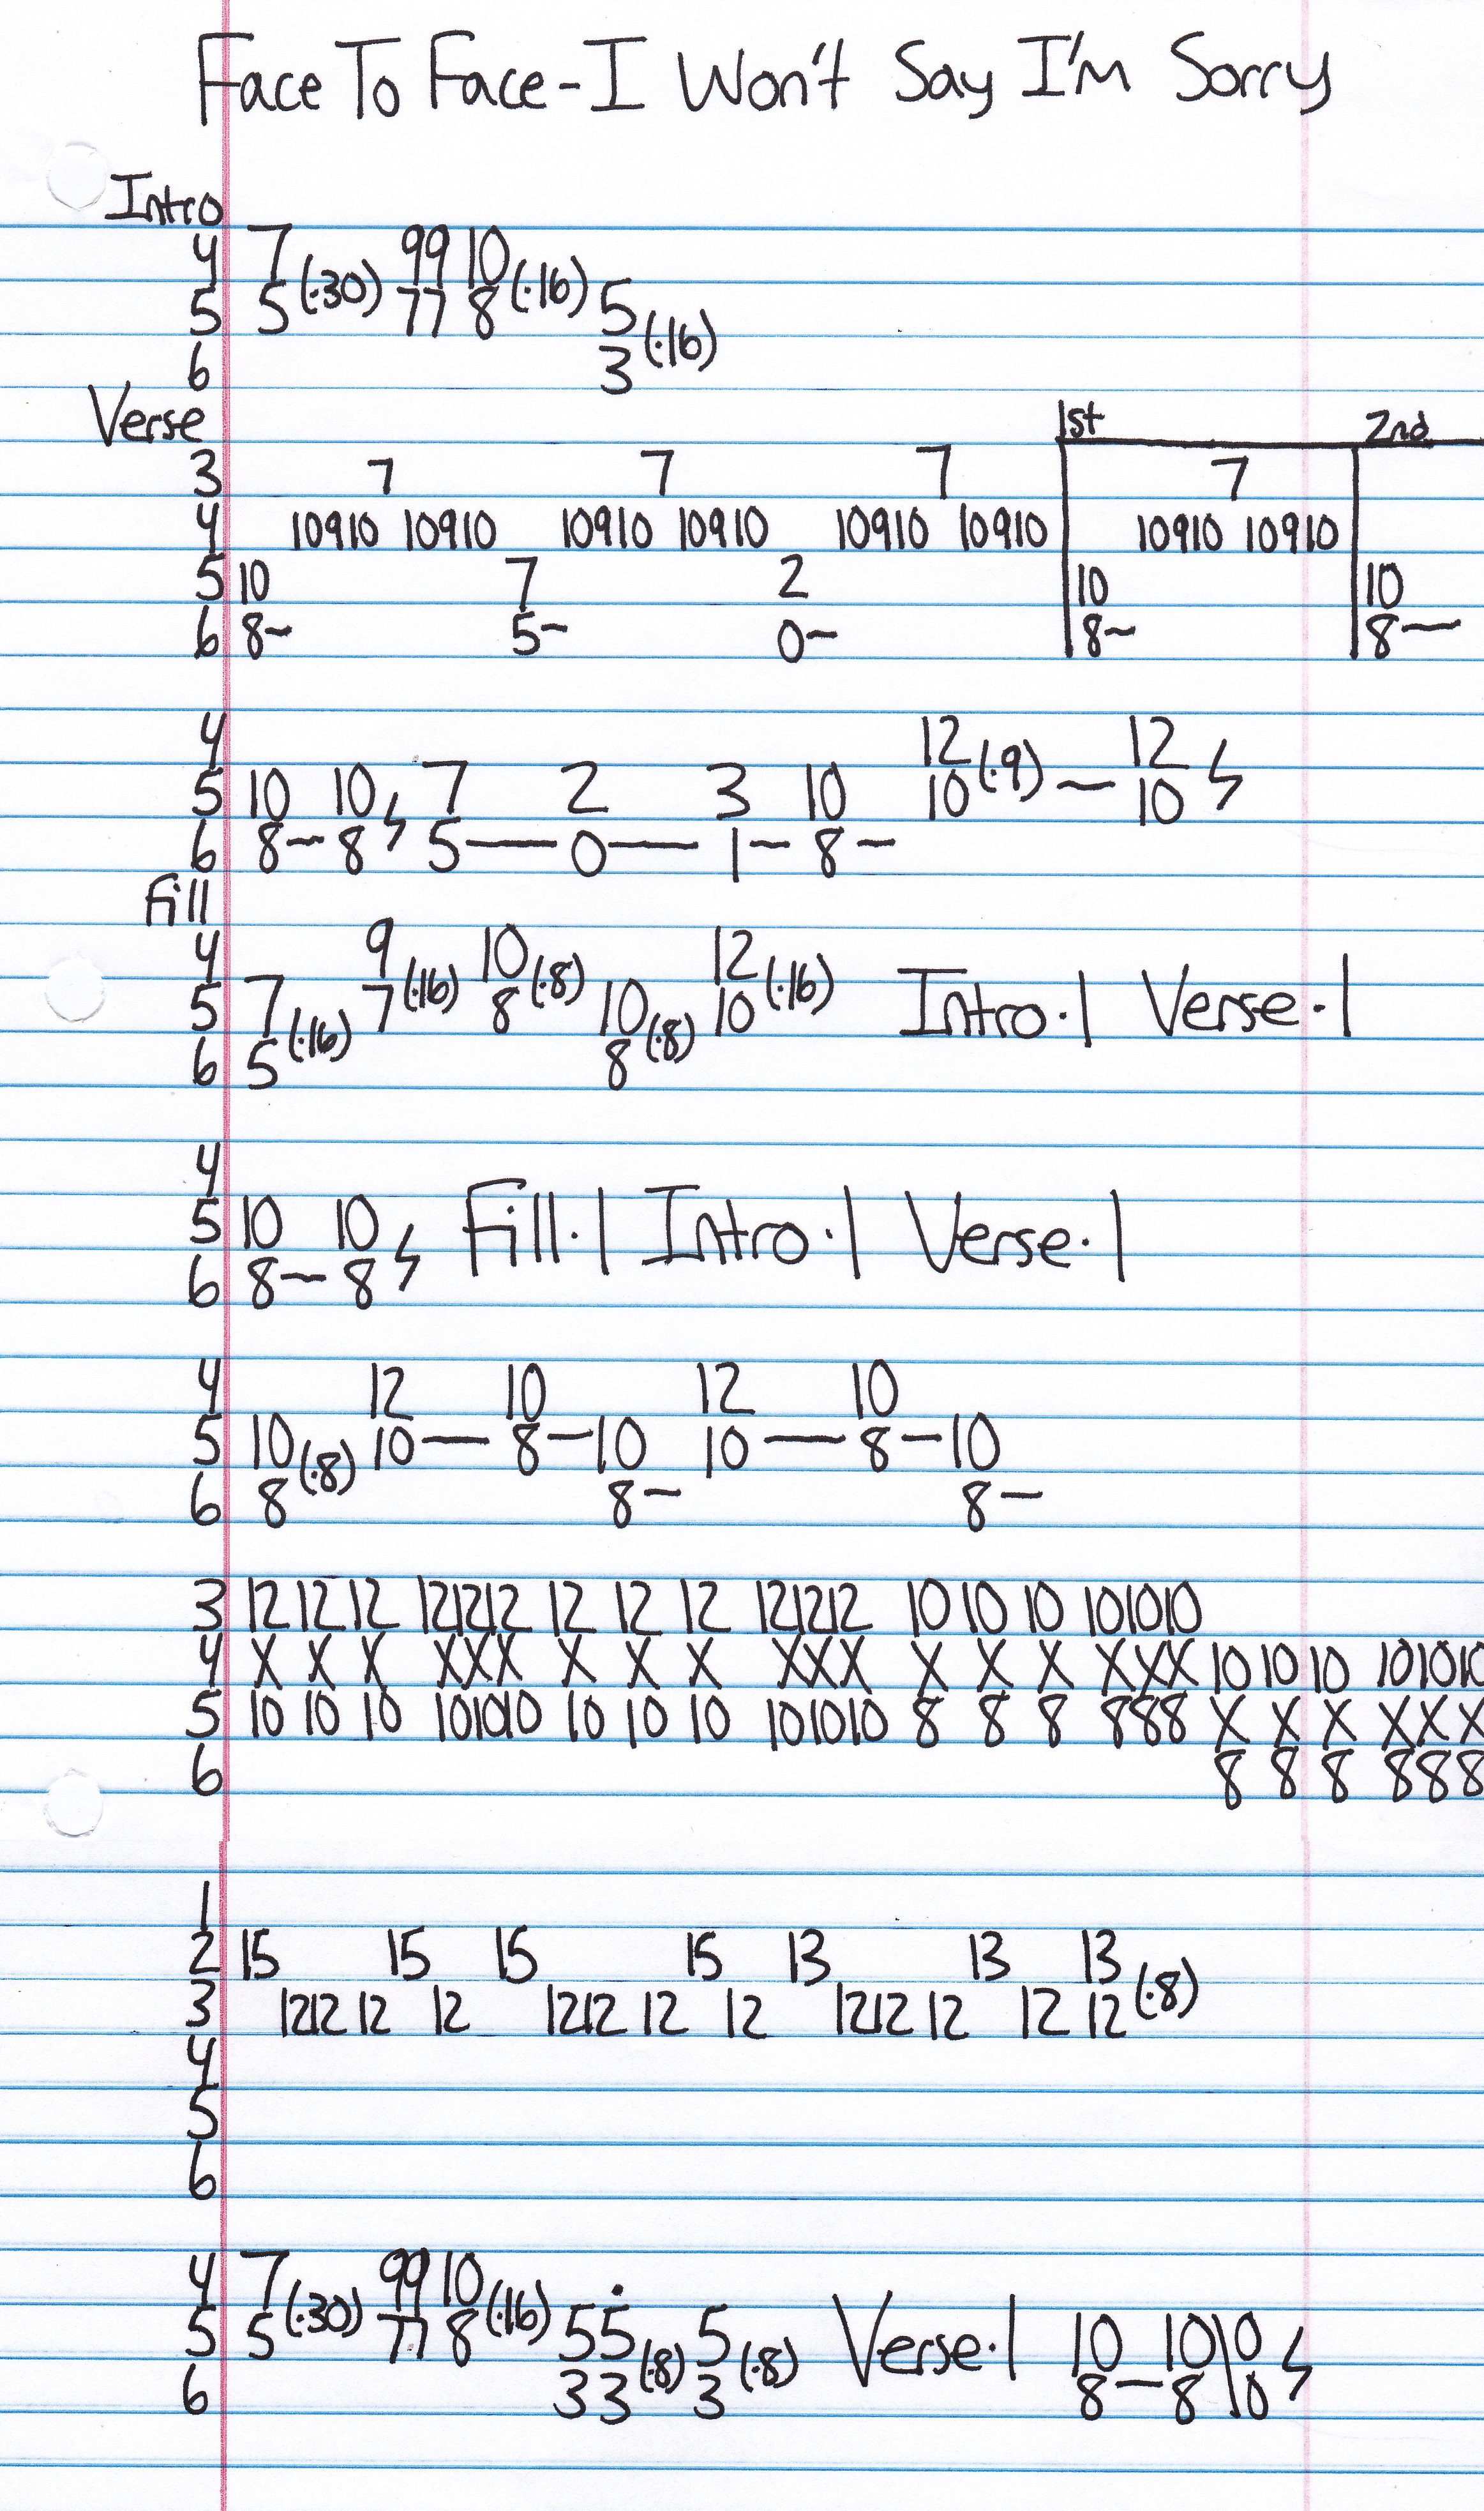 Face To Face - I Won't Say I'm Sorry
Intro
4 7 (·30) 99 10 (·16)
5 5 77 8 5 (·16)
6 3
Verse 1st 2nd
3 7 7 7 7
4 10910 10910 10910 10910 10910 10910 10910 10910
5 10 7 2 10 10
6 8~ 5~ 0~ 8~ 8—
4 12 (·9) 12
5 10 10 7 2 3 10 10 — 10 ϟ
6 8~ 8 ϟ 5— 0— 1~ 8~
fill
4 9 (·16) 10 (·8) 12 (·16)
5 7 (·16) 7 8 10 (·8) 10 Intro·1 Verse·1
6 5 8
4
5 10 10 Fill·1 Intro·1 Verse·1
6 8~ 8 ϟ
4 12 10 12 10
5 10 (·8) 10— 8— 10 10— 8— 10
6 8 8~ 8~
3 12 12 12 121212 12 12 12 121212 10 10 10 101010
4 X X X XXX X X X XXX X X X XXX 10 10 10 101010
5 10 10 10 101010 10 10 10 101010 8 8 8 888 X X X XXX
6 8 8 8 888
1
2 15 15 15 15 13 13 13 (·8)
3 1212 12 12 1212 12 12 1212 12 12 12
4
5
6
4 7 (·30) 99 10 (·16)
5 5 77 8 55 (·8) 5 (·8) Verse·1 10 10\0 ϟ
6 33 3 8— 8\0